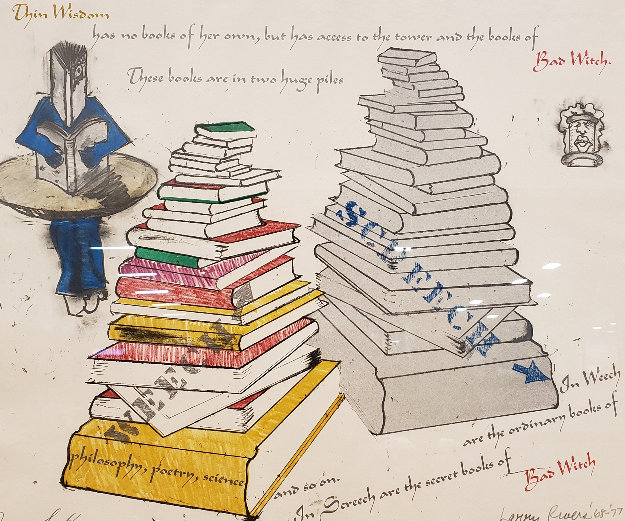 Thin Wisdom
has no books of her own, but has access to the tower and the books of
Bad Witch.
These books are in two huge piles
SCREECH
WEECH
In Weech
are the ordinary books of
philosophy, poetry, science
and so on.
In Screech are the secret books of
Bad Witch
Larry Rivers '68-'77